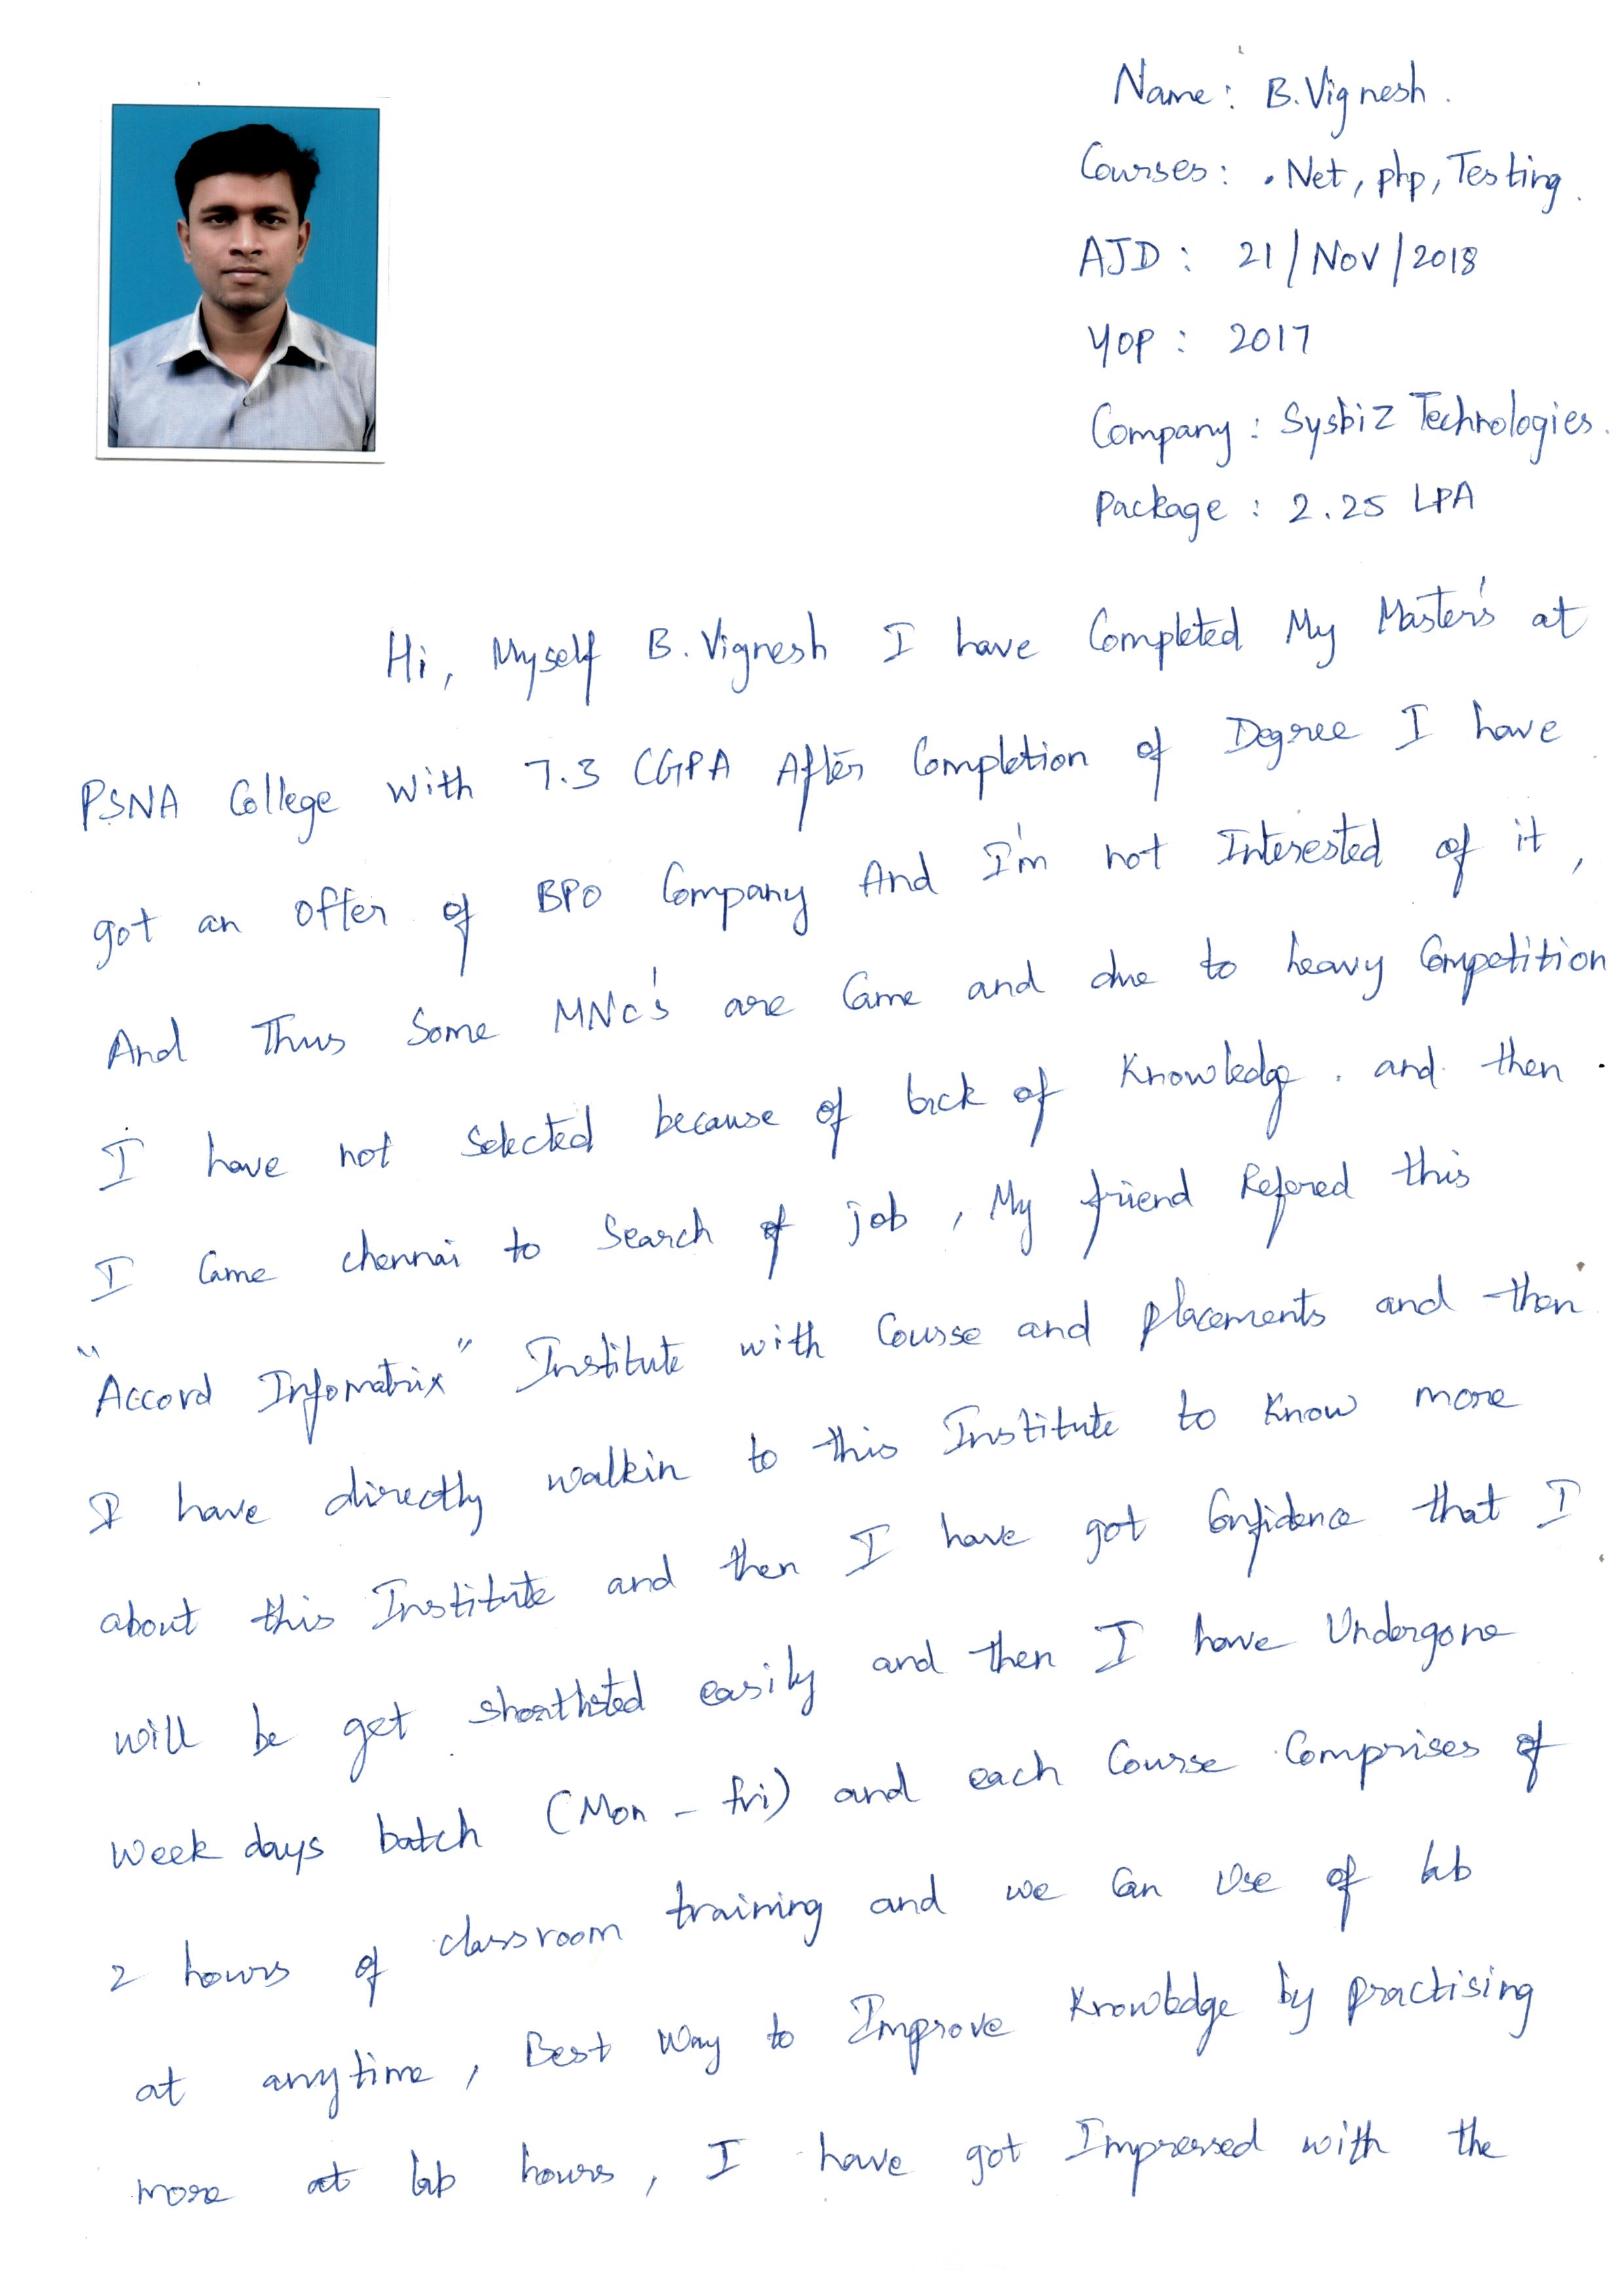 Name : B. Vignesh .
Courses : . Net, php, Testing .
AJD : 21/Nov/2018
YOP : 2017
Company : Sysbiz Technologies .
Package : 2.25 LPA
Hi, Myself B. Vignesh I have Completed My Master's at
PSNA College with 7.3 CGPA After Completion of Degree I have
got an offer of BPO Company And I'm not Interested of it ,
And Thus Some MNC's are Came and due to heavy Competition
I have not Selected because of lack of Knowledge . and then .
I Came chennai to Search of job , My friend Refered this
"Accord Infomatrix" Institute with Course and placements and then
I have directly walkin to this Institute to Know more
about this Institute and then I have got Confidence that I
will be get shortlisted easily and then I have Undergone
Week days batch (Mon - fri) and each Course Comprises of
2 hours of classroom training and we Can Use of lab
at anytime , Best Way to Improve Knowledge by practising
more at lab hours , I have got Impressed with the